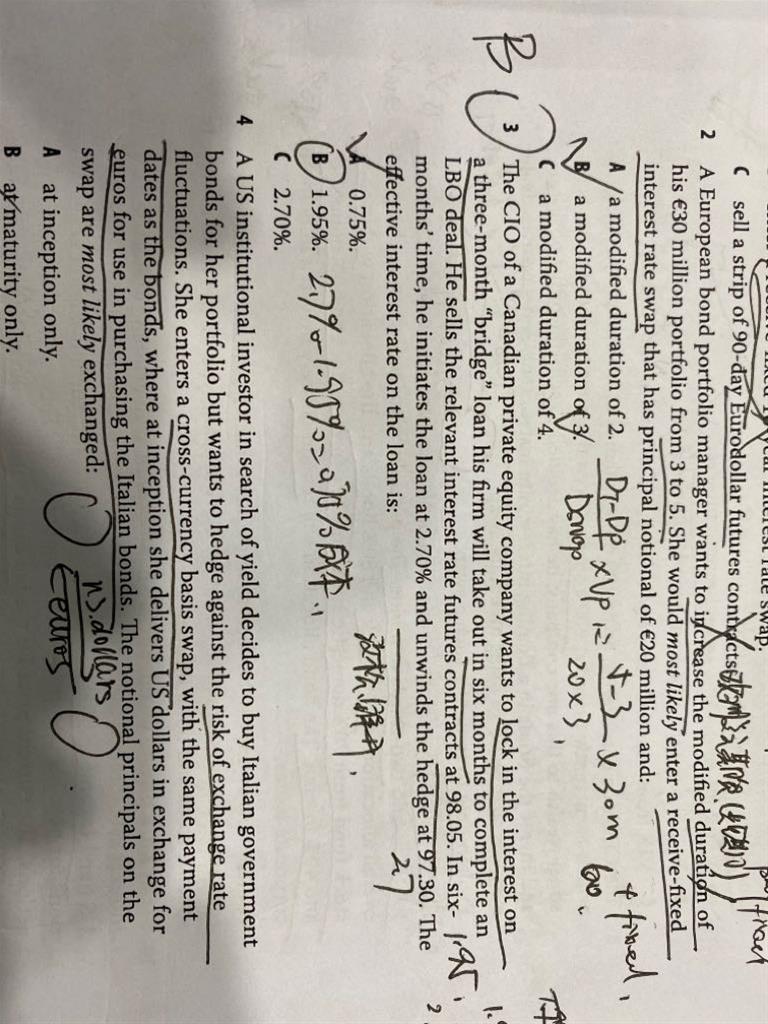 interest rate swap.
C sell a strip of 90-day Eurodollar futures contracts
2 A European bond portfolio manager wants to increase the modified duration of
his €30 million portfolio from 3 to 5. She would most likely enter a receive-fixed
interest rate swap that has principal notional of €20 million and:
A a modified duration of 2.
B a modified duration of 3.
C a modified duration of 4.
× Vp =
× 30m
20 × 3
+ fixed,
B
3 The CIO of a Canadian private equity company wants to lock in the interest on
a three-month “bridge” loan his firm will take out in six months to complete an
LBO deal. He sells the relevant interest rate futures contracts at 98.05. In six-
1.95
months’ time, he initiates the loan at 2.70% and unwinds the hedge at 97.30. The
2.7
effective interest rate on the loan is:
A 0.75%.
B 1.95%. 2.7%-1.95%=
C 2.70%.
4 A US institutional investor in search of yield decides to buy Italian government
bonds for her portfolio but wants to hedge against the risk of exchange rate
fluctuations. She enters a cross-currency basis swap, with the same payment
dates as the bonds, where at inception she delivers US dollars in exchange for
euros for use in purchasing the Italian bonds. The notional principals on the
swap are most likely exchanged:
dollars
euros
A at inception only.
B at maturity only.